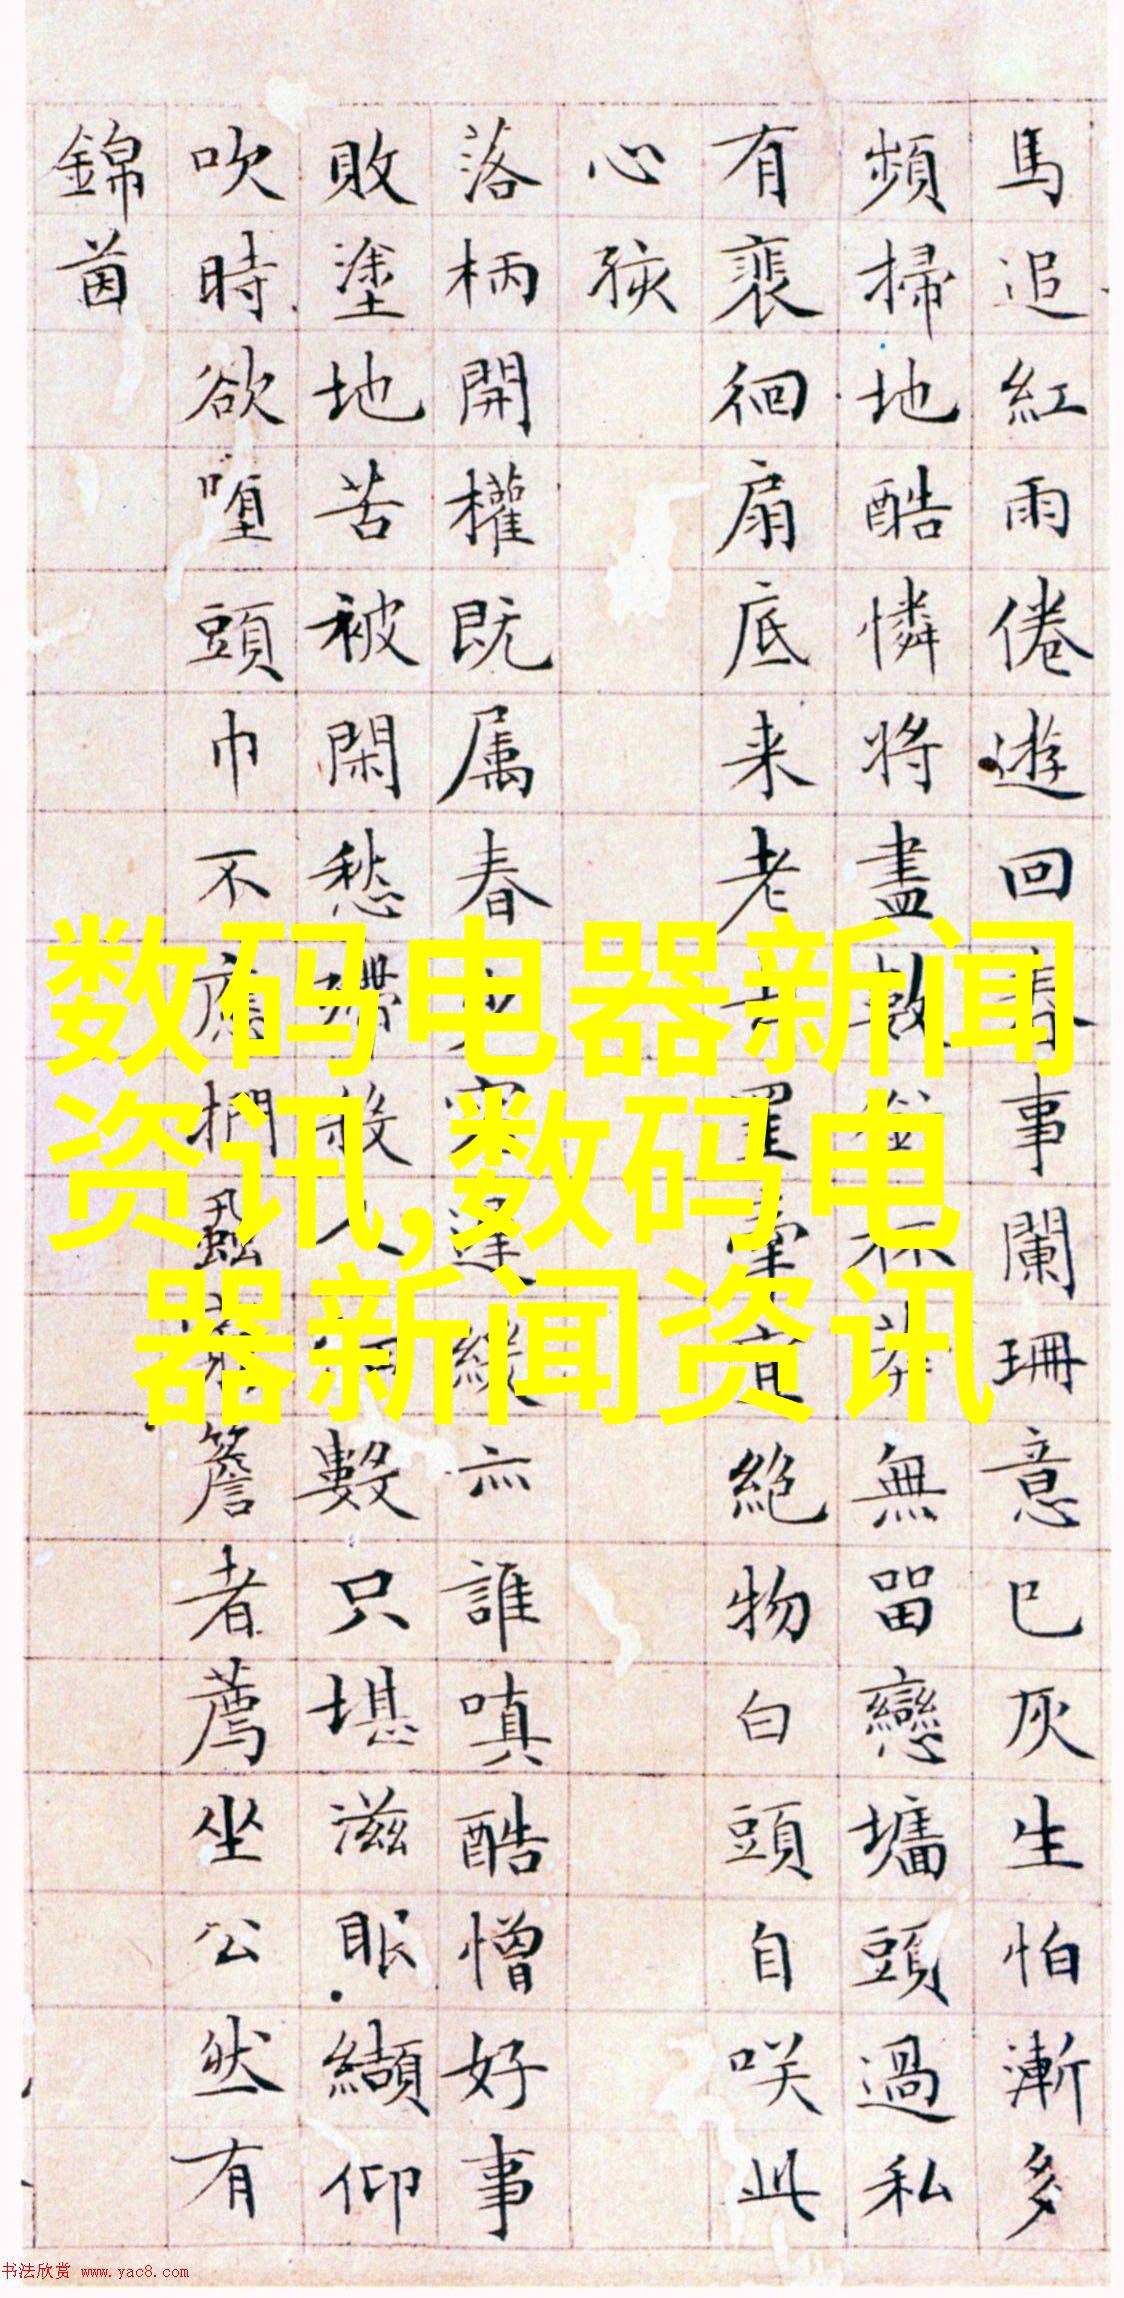 馬追紅雨倦遊回春事闌珊意已灰生怕漸多
頻掃地酷憐將盡杯無畱戀墻頭過私
有裵徊扇底来老絶物白頭自咲此
心孩
落柄開權既属春逢緩亦誰嗔酷憎好事
敗塗地苦被閑愁殢殺人數只堪滋眠纈仰
吹時欲堕頭巾不應捫蝨簷者薦坐公然有
錦茵
数码电器新闻
资讯,数码电
器新闻资讯
书法欣赏 www.yac8.com